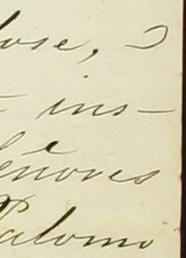 lose, I
ins-
eñores
Palomo